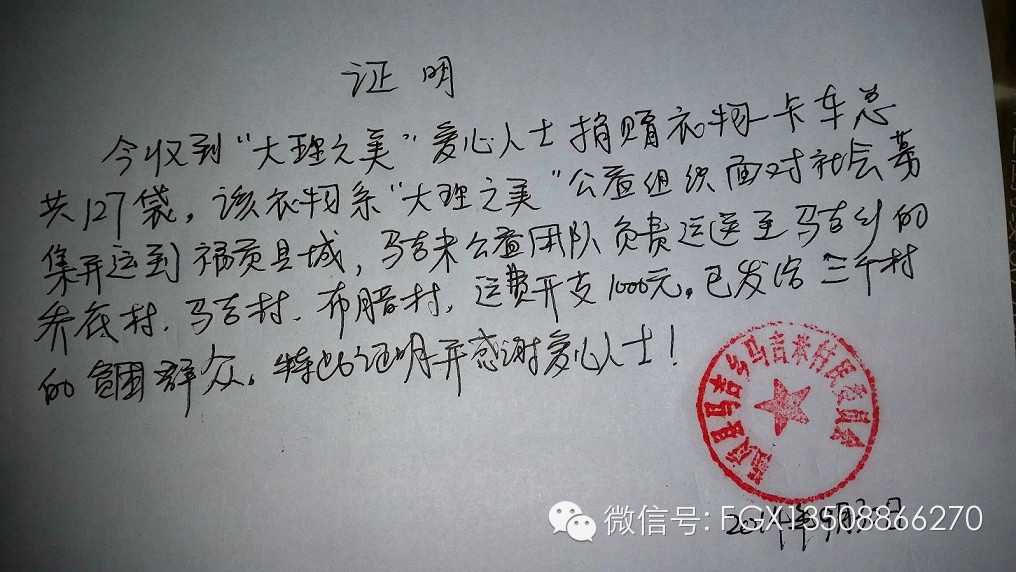 证明
今收到“大理之美”爱心人士捐赠衣物一卡车总
共127袋，该衣物系“大理之美”公益组织面对社会募
集并运到福贡县城，马吉米公益团队负责运送至马吉乡的
乔底村、马吉村、布腊村，运费开支1000元，已发给三个村
的贫困群众，特此证明并感谢爱心人士！
福贡县马吉乡马吉米村民委员会
2014年9月30日
微信号: FGX13508866270